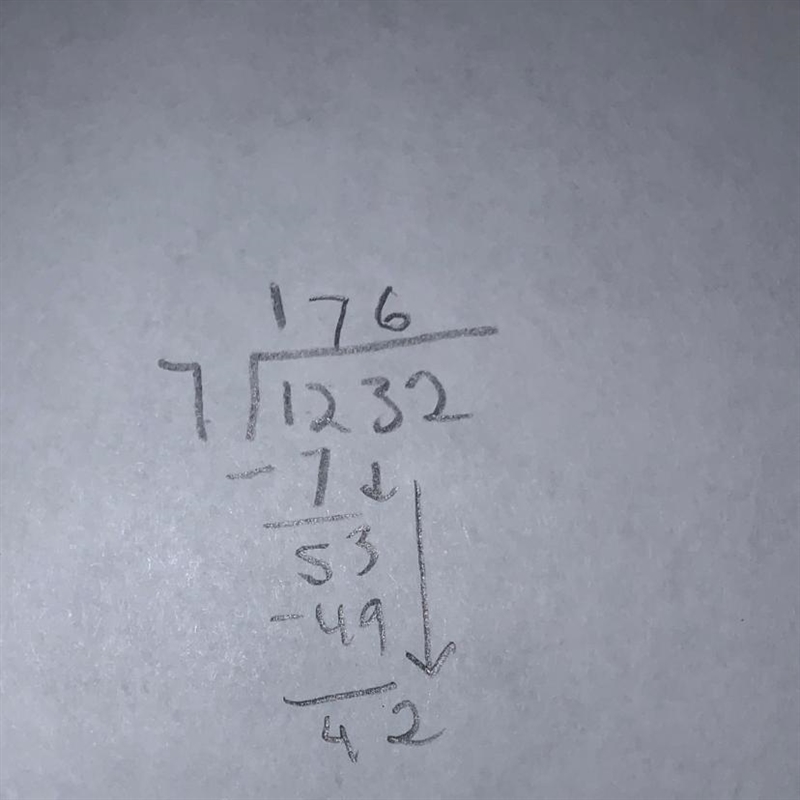 176
7 1232
- 7 ↓
53
-49
42